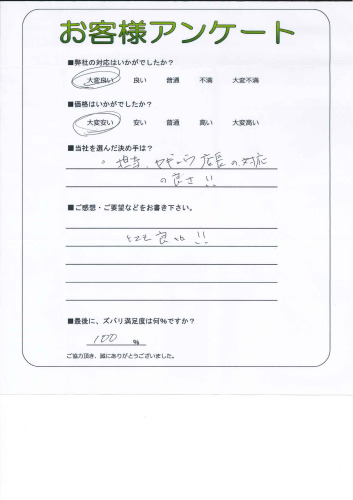 お客様アンケート
■弊社の対応はいかがでしたか？
大変良い 良い 普通 不満 大変不満
■価格はいかがでしたか？
大変安い 安い 普通 高い 大変高い
■当社を選んだ決め手は？
店長の対応
の良さ!!
■ご感想・ご要望などをお書き下さい。
とても良い!!
■最後に、ズバリ満足度は何％ですか？
100 %
ご協力頂き、誠にありがとうございました。